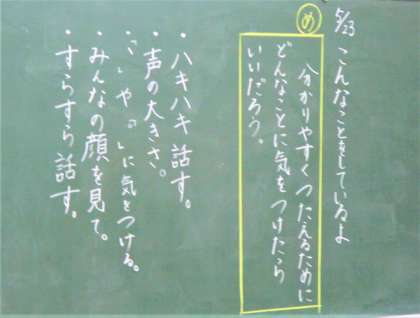 5/23 こんなことをしているよ
め
分かりやすくつたえるために
どんなことに気をつけたら
いいだろう。
・ハキハキ話す。
・声の大きさ。
・「、」や「。」に気をつける。
・みんなの顔を見て。
・すらすら話す。